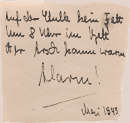 Auf der Stulle kein Fett
Um 8 Uhr im Bett
Der Arsch kaum warm
Alarm!
Mai 1943